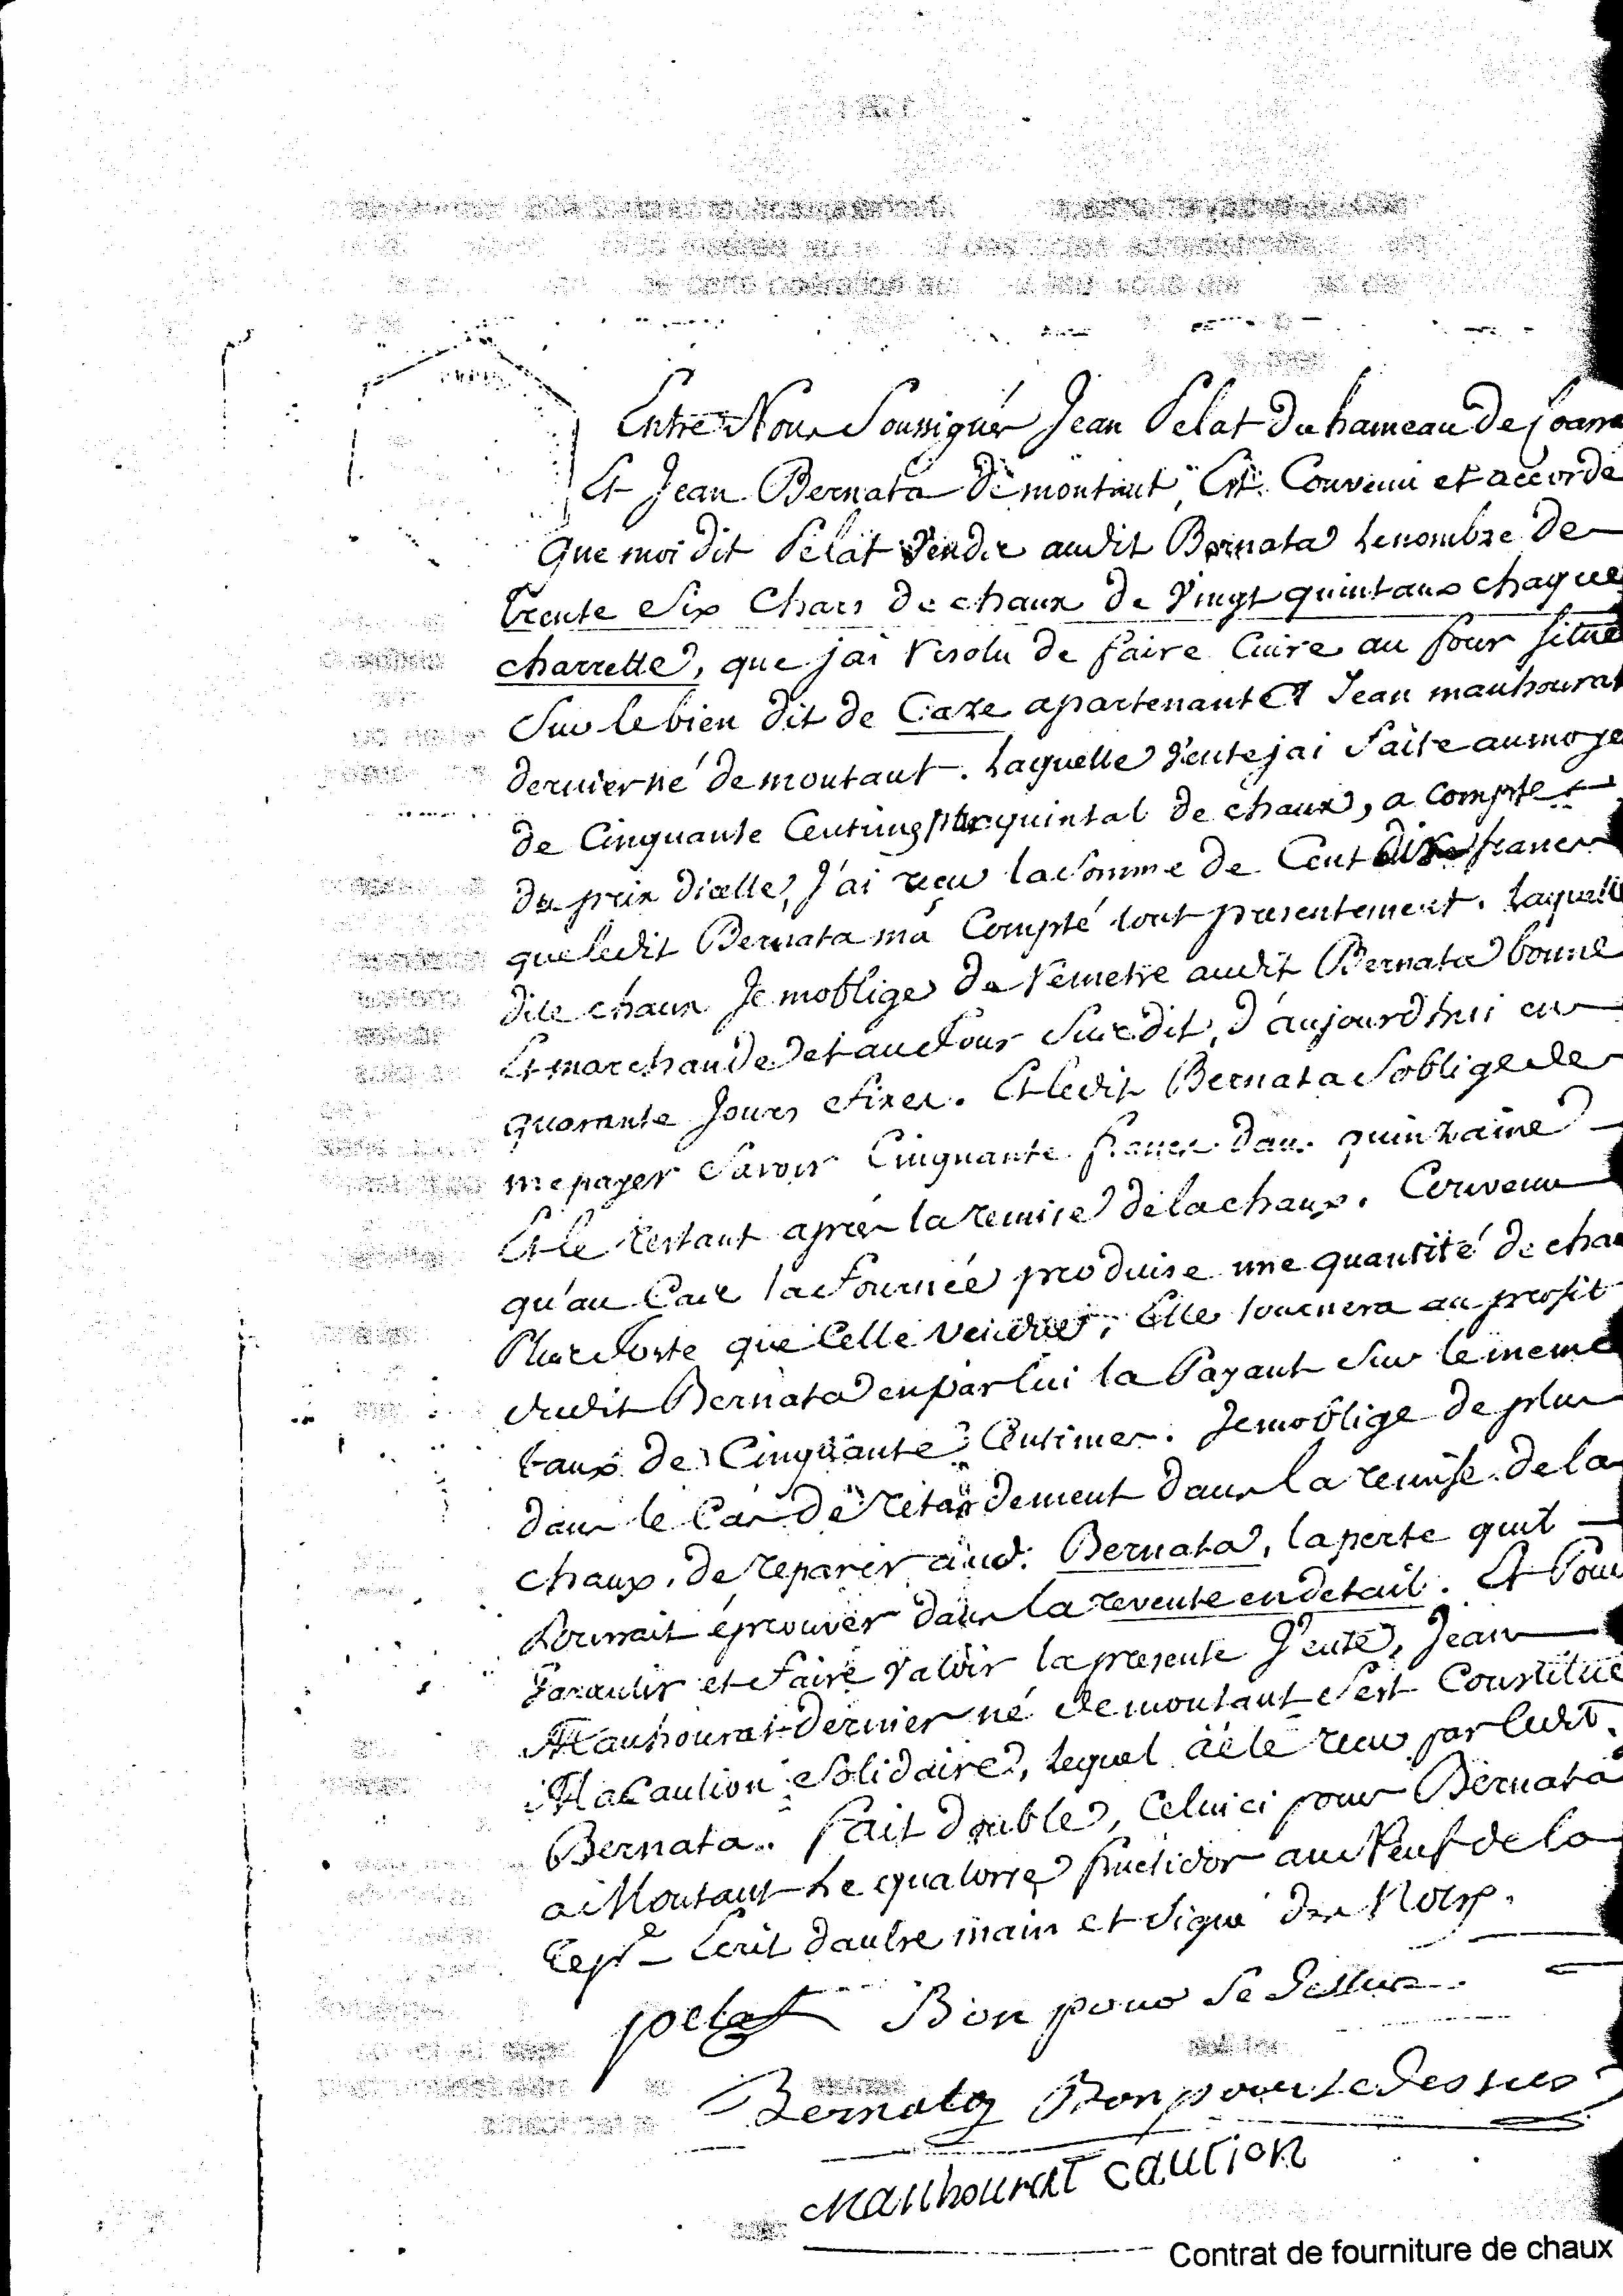 Entre Nous Soussignés Jean Pelat du hameau de
Et Jean Bernata de montaut, Est Convenu et accordé
Que moi dit Pelat vendre audit Bernata le nombre de
trente Six Chars de chaux de Vingt quintaux chaque
charrette, que jai résolu de faire Cuire au four situé
Sur le bien dit de Caze apartenant a Jean mauhourat
dernier né de montaut. Laquelle Vente jai faite au moye
de Cinquante Centimes par quintal de chaux, a compte
du prix dicelle, J'ai reçu la Somme de Cent dix francs
que ledit Bernata ma Compté tout presentement. Laquelle
dite chaux Je moblige de remetre audit Bernata bonne
Et marchande et au four Susdit, d'aujourdhui en
quarante Jours fixes. Et ledit Bernata Soblige de
me payer Savoir Cinquante francs dans quinzaine
Et le restant après la remise de la chaux. Convenu
qu'au Cas la fournée produise une quantité de chau
Plus forte que Celle vendue, Elle tournera au profit
dudit Bernata en par lui la Payant Sur le meme
taux de Cinquante Centimes. Je moblige de plus
dans le Cas de retardement dans la remise de la
chaux, de reparer aud. Bernata, la perte quil
Pourrait éprouver dans la revente en detail. Et Pour
Garantir et faire Valoir la presente Vente, Jean
Mauhourat dernier né de montaut Sest Constitué
Ma Caution Solidaire, lequel a été recu par ledit
Bernata. Fait double, Celui ci pour Bernata
a Montaut Le quatorze fructidor an Neuf de la
Repe Ecrit dautre main et Signé de Nous.
pelat Bon pour le dessus
Bernata Bon pour le desus
Mauhourat caution
Contrat de fourniture de chaux